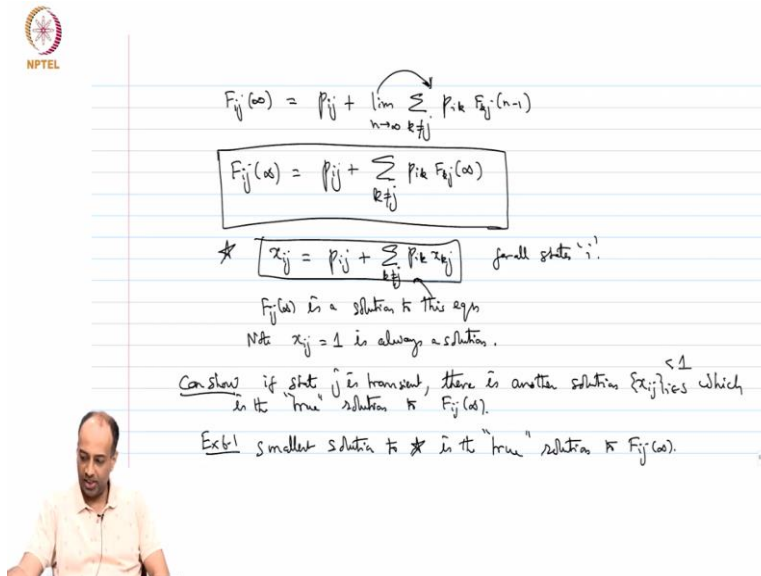 NPTEL
F_ij(∞) = p_ij + lim_{n→∞} Σ_{k≠j} p_ik F_kj(n-1)
F_ij(∞) = p_ij + Σ_{k≠j} p_ik F_kj(∞)
☆ x_ij = p_ij + Σ_{k≠j} p_ik x_kj for all states 'i'.
F_ij(∞) is a solution to this eqn
Note x_ij = 1 is always a solution.
Can show if state j is transient, there is another solution {x_ij}_{i∈S} <1 which
is the "true" solution to F_ij(∞).
Ex 6.1 smallest solution to ☆ is the "true" solution to F_ij(∞).